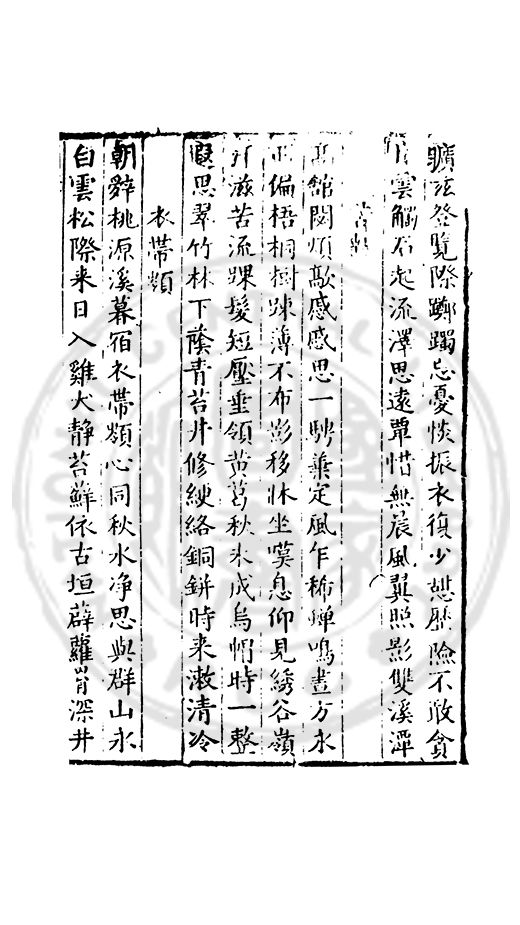 曠茲登覽際躑躅忘憂惔振衣復少憩歷險不敢貪
雲觸石起流澤思遠覃惜無晨風翼照影雙溪潭
苦
館閟煩歊感感思一騁葉定風乍稀蟬鳴晝方永
偏梧桐樹疎薄不布影移牀坐嘆息仰見綉谷嶺
汗滋苦流踝髮短壓垂領黃葛秋未成烏帽時一整
遐思翠竹林下蔭青苔井修綆絡銅缾時来漱清冷
衣帶頟
朝辭桃源溪暮宿衣帶頟心同秋水净思與群山永
白雲松際来日入雞犬静苔蘚依古垣薜蘿冐深井